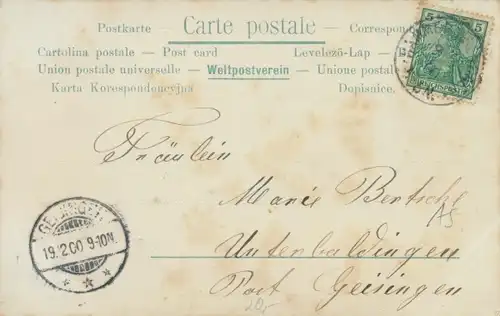 Postkarte — Carte postale — Correspon
Cartolina postale — Post card — Levelező-Lap —
Union postale universelle — Weltpostverein — Unione postal
Karta Korespondencyjna Dopisnice.
5 5
Fräulein
Marie Bentsche
Unterbaldingen
Post Geisingen
GEISINGEN
19.2.00 9-10N.